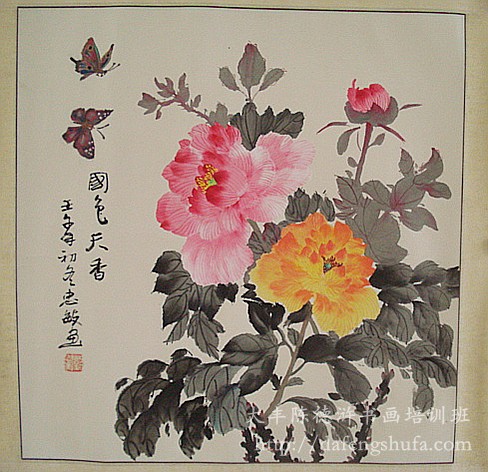 國色天香
壬午年初冬忠敏画
大丰陈德浒书画培训班
http://dafengshufa.com